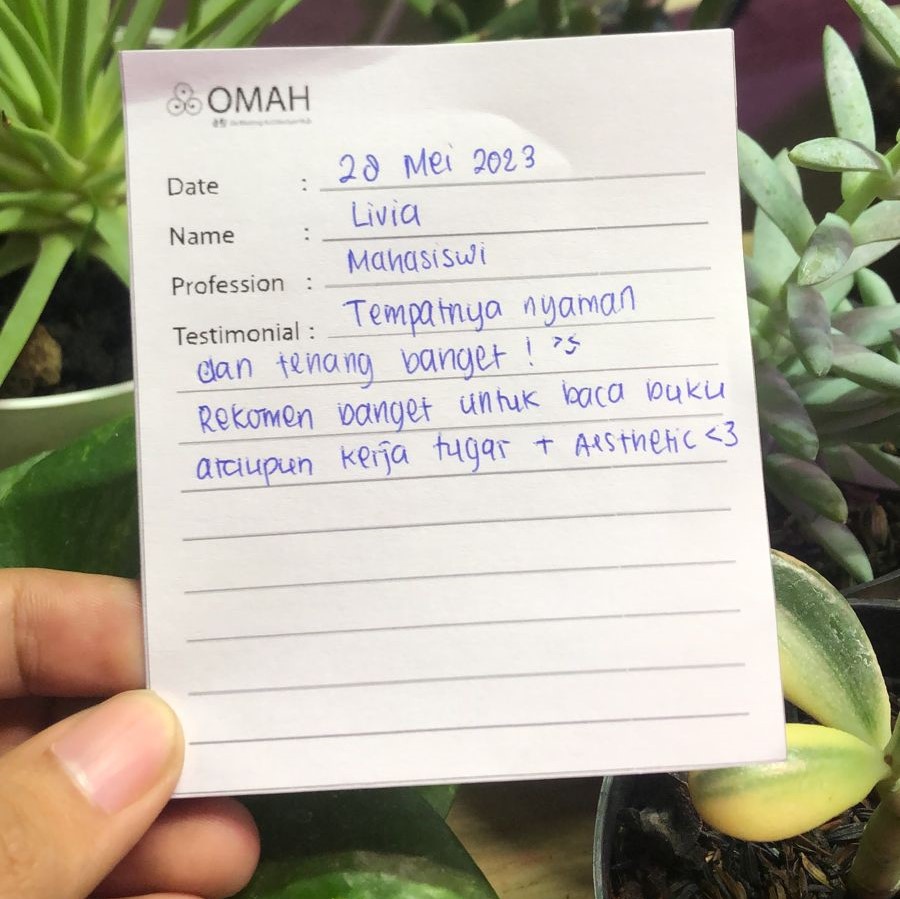 OMAH
Date : 28 Mei 2023
Name : Livia
Profession : Mahasiswi
Testimonial : Tempatnya nyaman
dan tenang banget !
Rekomen banget untuk baca buku
ataupun kerja tugas + Aesthetic <3